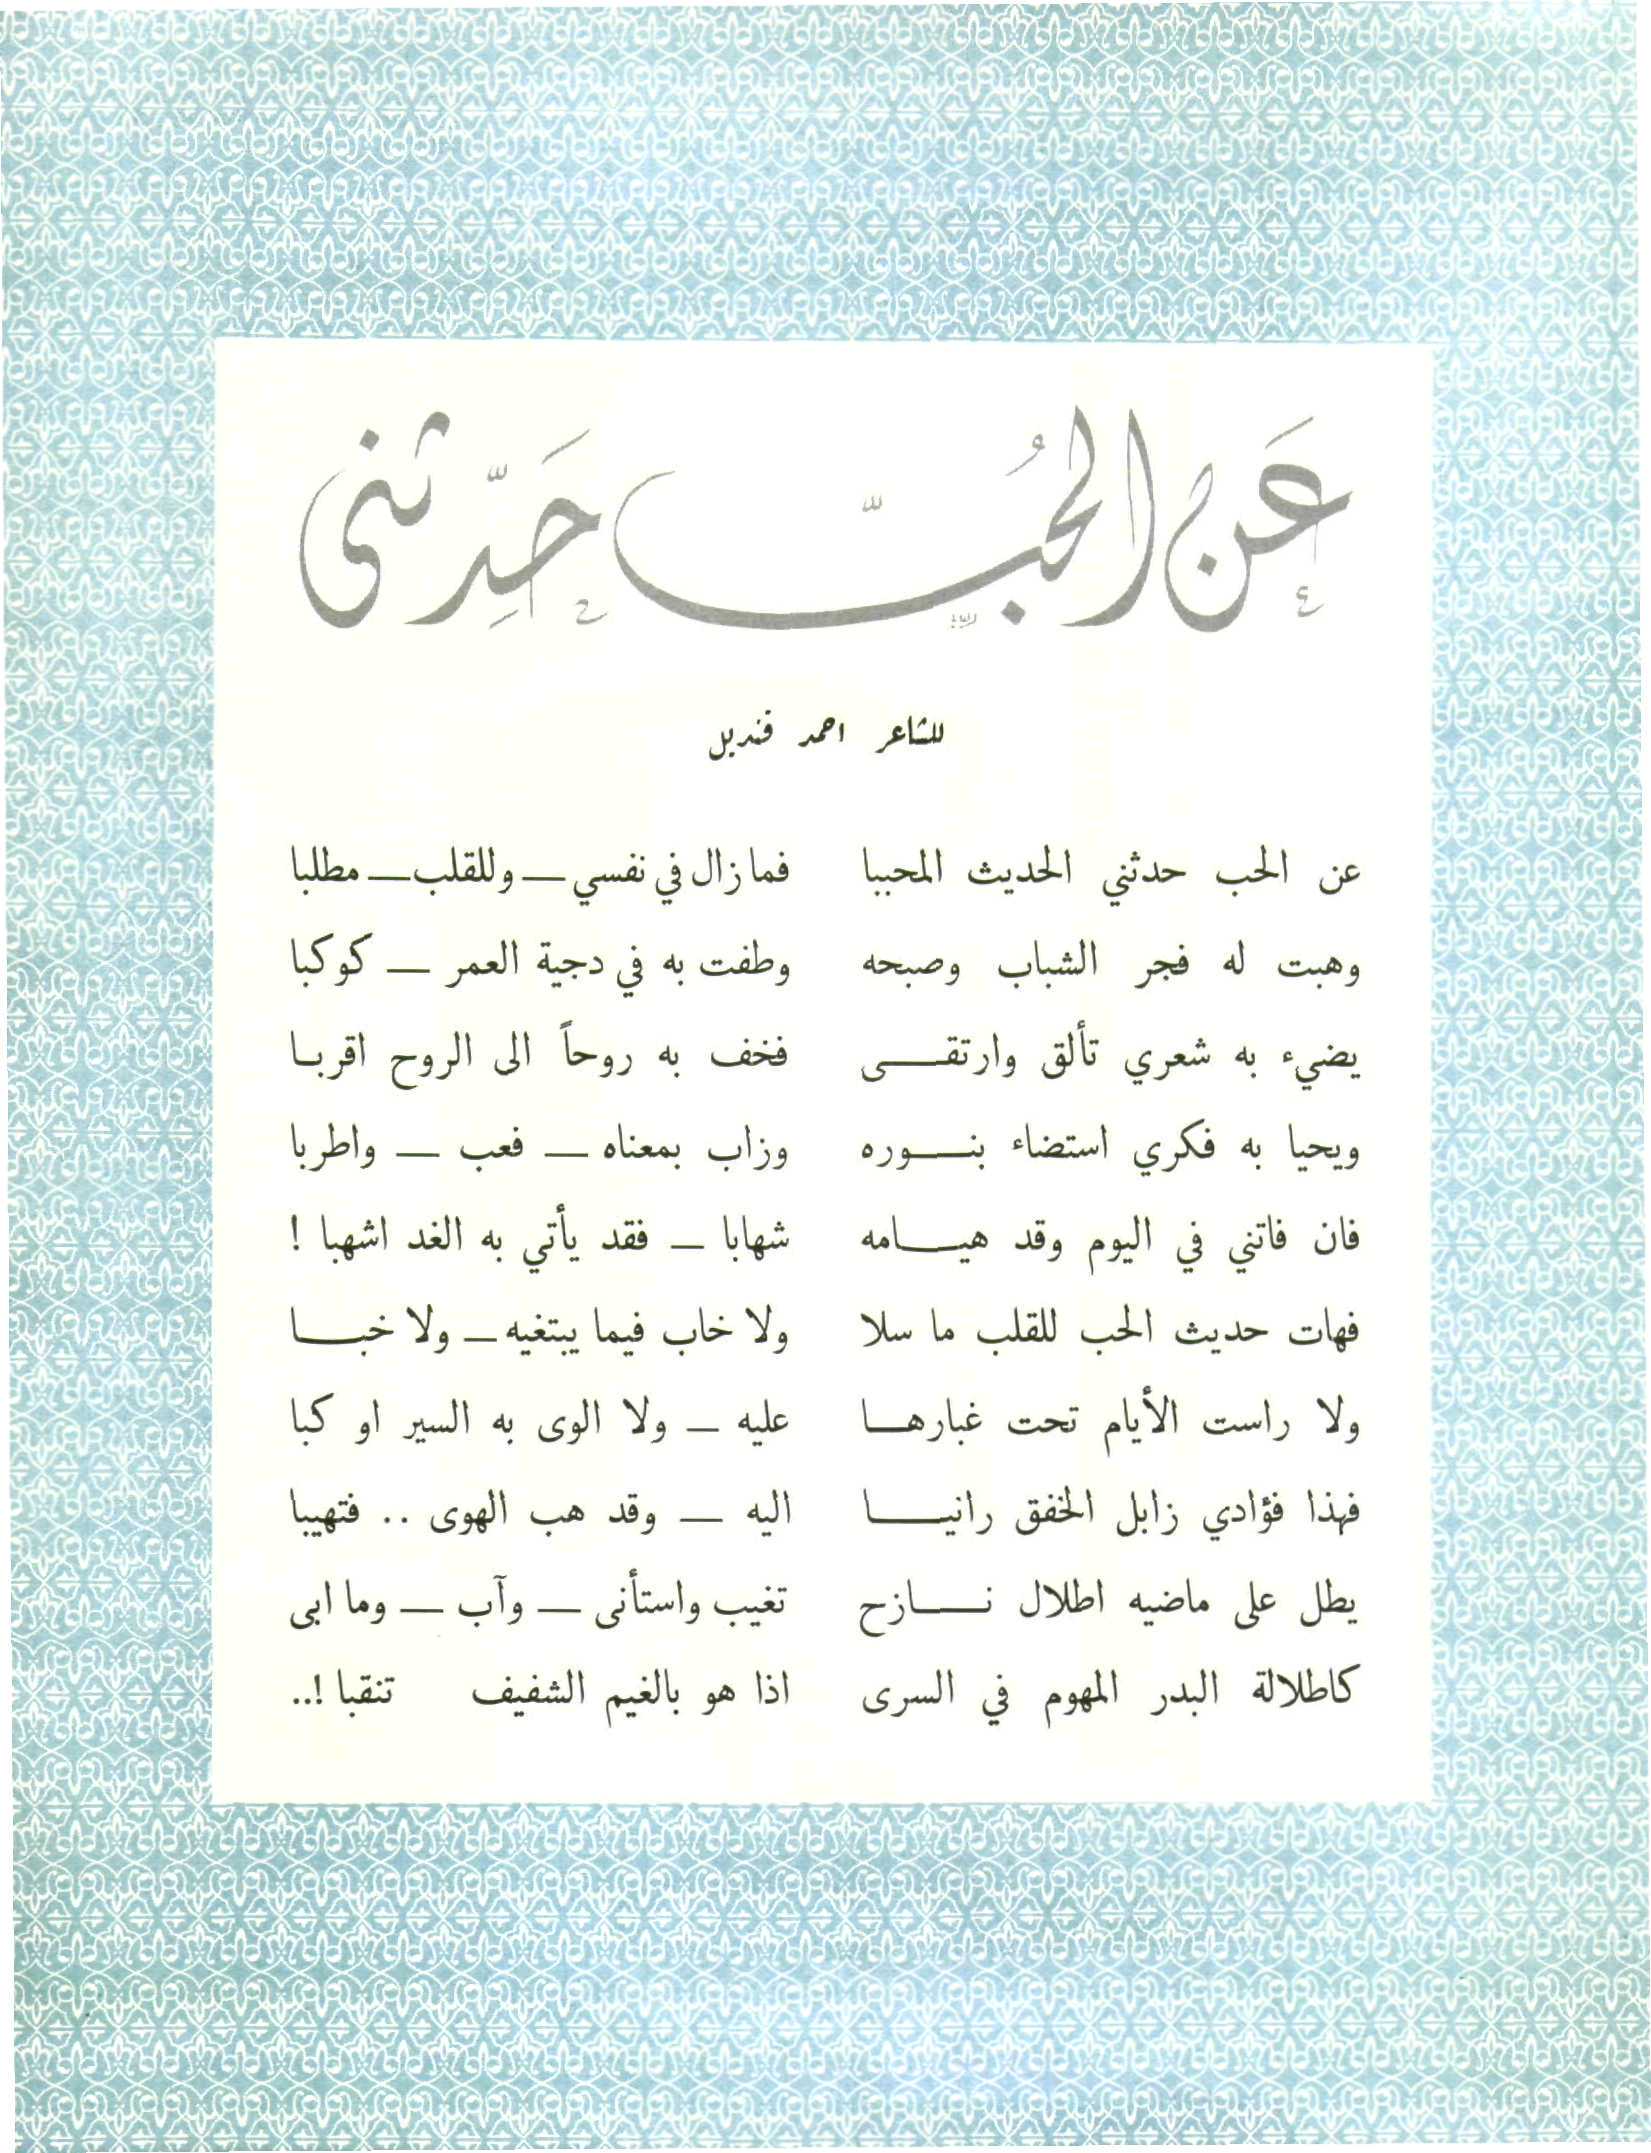 عَن الحُبّ حَدِّثني
للشاعر احمد قنديل
عن الحب حدثني الحديث المحببا فما زال في نفسي ــ وللقلب ــ مطلبا
وهبت له فجر الشباب وصبحه وطفت به في دجية العمر ــ كوكبا
يضيء به شعري تألق وارتقـــى فخف به روحاً الى الروح اقربـا
ويحيا به فكري استضاء بنـــوره وزاب بمعناه ــ فعب ــ واطربا
فان فاتني في اليوم وقد هيـــامه شهابا ــ فقد يأتي به الغد اشهبا !
فهات حديث الحب للقلب ما سلا ولا خاب فيما يبتغيه ــ ولا خبـــا
ولا راست الأيام تحت غبارهـــا عليه ــ ولا الوى به السير او كبا
فهذا فؤادي زابل الخفق رانيـــا اليه ــ وقد هب الهوى .. فتهيبا
يطل على ماضيه اطلال نـــازح تغيب واستأنى ــ وآب ــ وما ابى
كاطلالة البدر المهوم في السرى اذا هو بالغيم الشفيف تنقبا !..